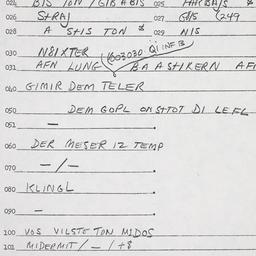 024 BIS TON / GIB A BIS 025
026 STRAJ 027 G/15 (249
028 A STIS TON * 029 N/S
030 N81XTER (003030 Q1 INF B
031 AFN LUNG BA A STIKERN AF
040 GIMIR DEM TELER
050 DEM GOPL ON STTOT DI LEFL
051 —
060 DER MESER IZ TEMP
070 — / —
080 KLINGL
090 —
100 VOS VILSTE TON MIDOS
101 MIDERMIT / — / +8